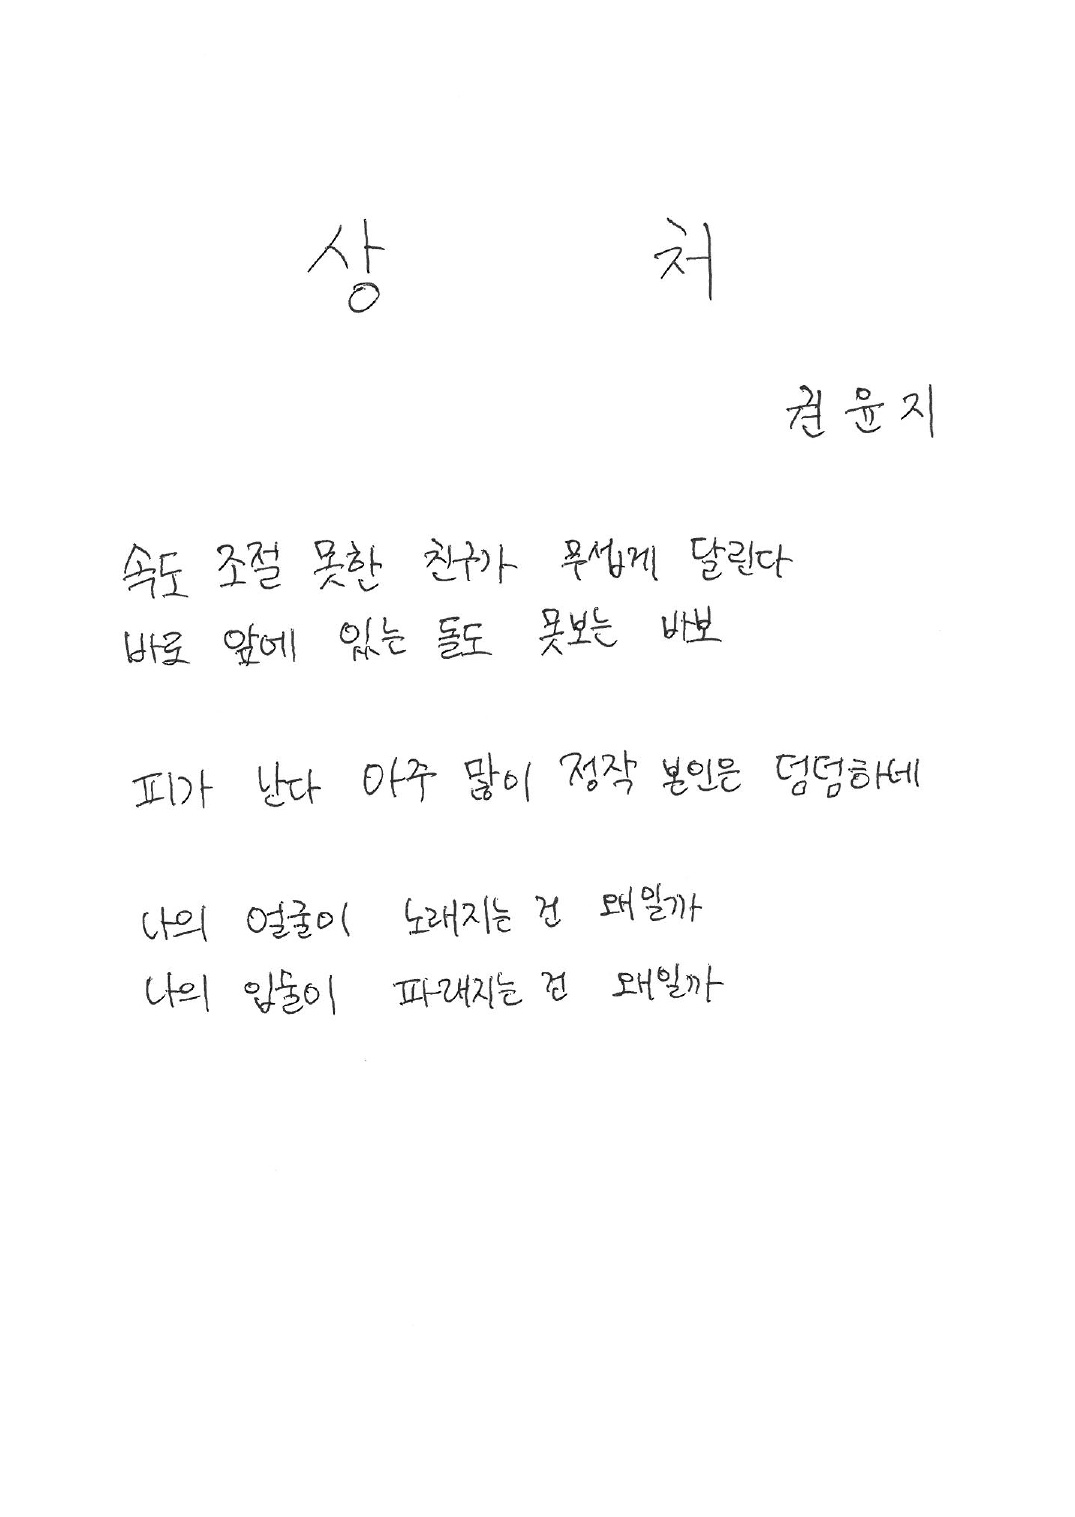 상 처
권윤지
속도 조절 못한 친구가 무섭게 달린다
바로 앞에 있는 돌도 못보는 바보
피가 난다 아주 많이 정작 본인은 덤덤하네
나의 얼굴이 노래지는 건 왜일까
나의 입술이 파래지는 건 왜일까